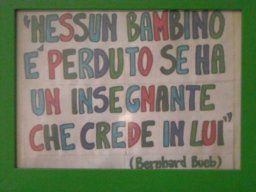 "NESSUN BAMBINO
E' PERDUTO SE HA
UN INSEGNANTE
CHE CREDE IN LUI"
(Bernhard Bueb)